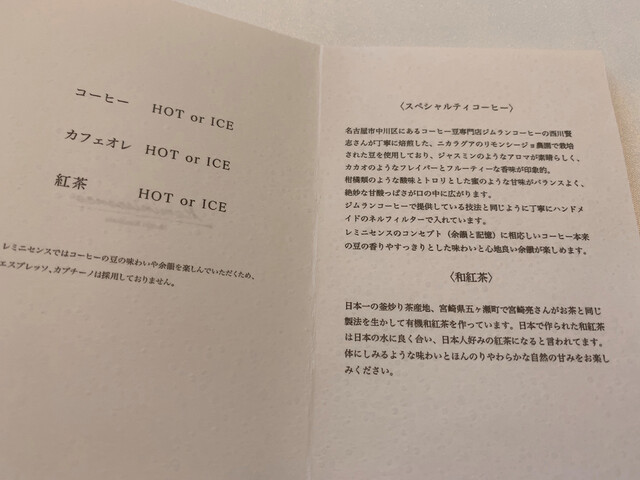 コーヒー HOT or ICE
カフェオレ HOT or ICE
紅茶 HOT or ICE
レミニセンスではコーヒーの豆の味わいや余韻を楽しんでいただくため、
エスプレッソ、カプチーノは採用しておりません。
〈スペシャルティコーヒー〉
名古屋市中川区にあるコーヒー豆専門店ジムランコーヒーの西川賢
志さんが丁寧に焙煎した、ニカラグアのリモンシージョ農園で栽培
された豆を使用しており、ジャスミンのようなアロマが素晴らしく、
カカオのようなフレイバーとフルーティーな香味が印象的。
柑橘類のような酸味とトロリとした蜜のような甘味がバランスよく、
絶妙な甘酸っぱさが口の中に広がります。
ジムランコーヒーで提供している技法と同じように丁寧にハンドメ
イドのネルフィルターで入れています。
レミニセンスのコンセプト（余韻と記憶）に相応しいコーヒー本来
の豆の香りやすっきりとした味わいと心地良い余韻が楽しめます。
〈和紅茶〉
日本一の釜炒り茶産地、宮崎県五ヶ瀬町で宮崎亮さんがお茶と同じ
製法を生かして有機和紅茶を作っています。日本で作られた和紅茶
は日本の水に良く合い、日本人好みの紅茶になると言われてます。
体にしみるような味わいとほんのりやわらかな自然の甘みをお楽し
みください。